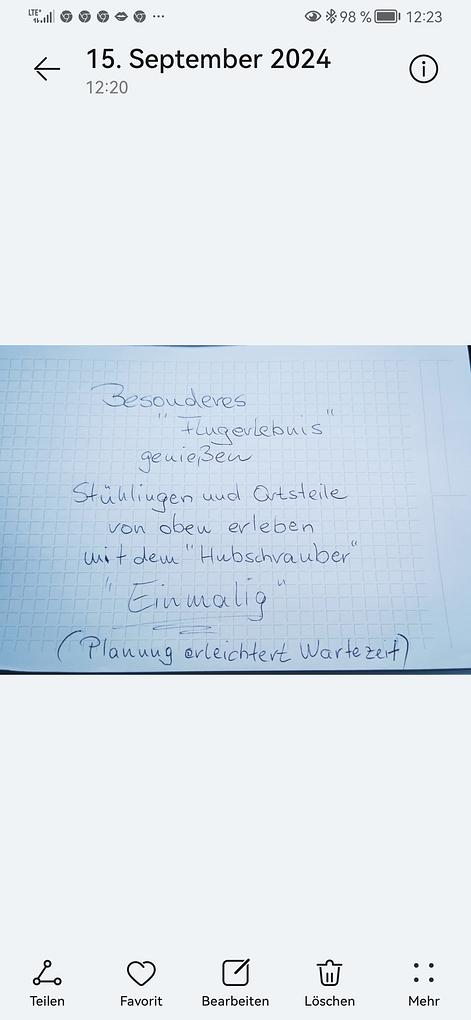 LTE+ 98 % 12:23
15. September 2024
12:20
Besonderes
"Flugerlebnis"
genießen
Stühlingen und Ortsteile
von oben erleben
mit dem "Hubschrauber"
"Einmalig"
(Planung erleichtert Wartezeit)
Teilen Favorit Bearbeiten Löschen Mehr